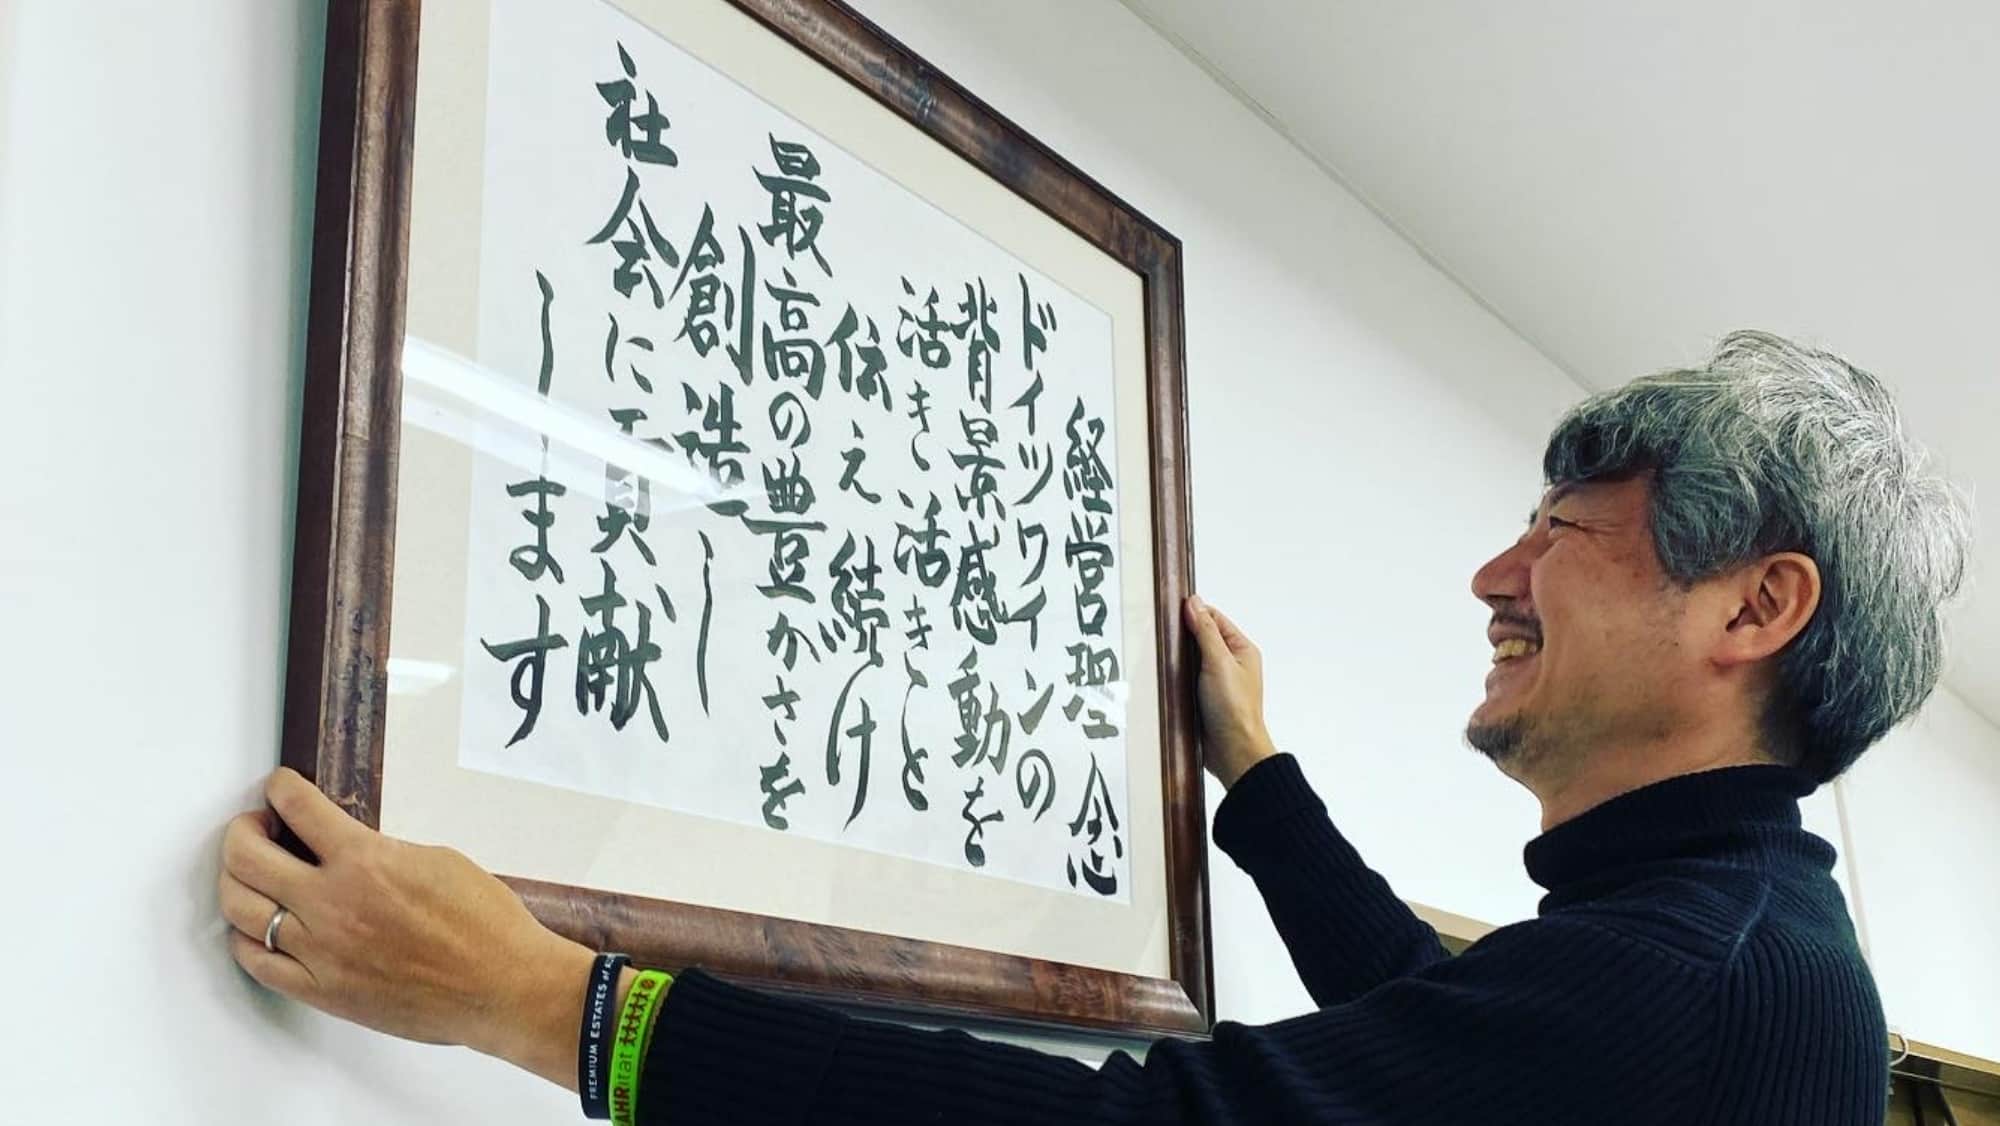 経営理念
ドイツワインの
背景感動を
活き活きと
伝え続け
最高の豊かさを
創造し
社会に貢献
します
PREMIUM ESTATES of
AHRitat